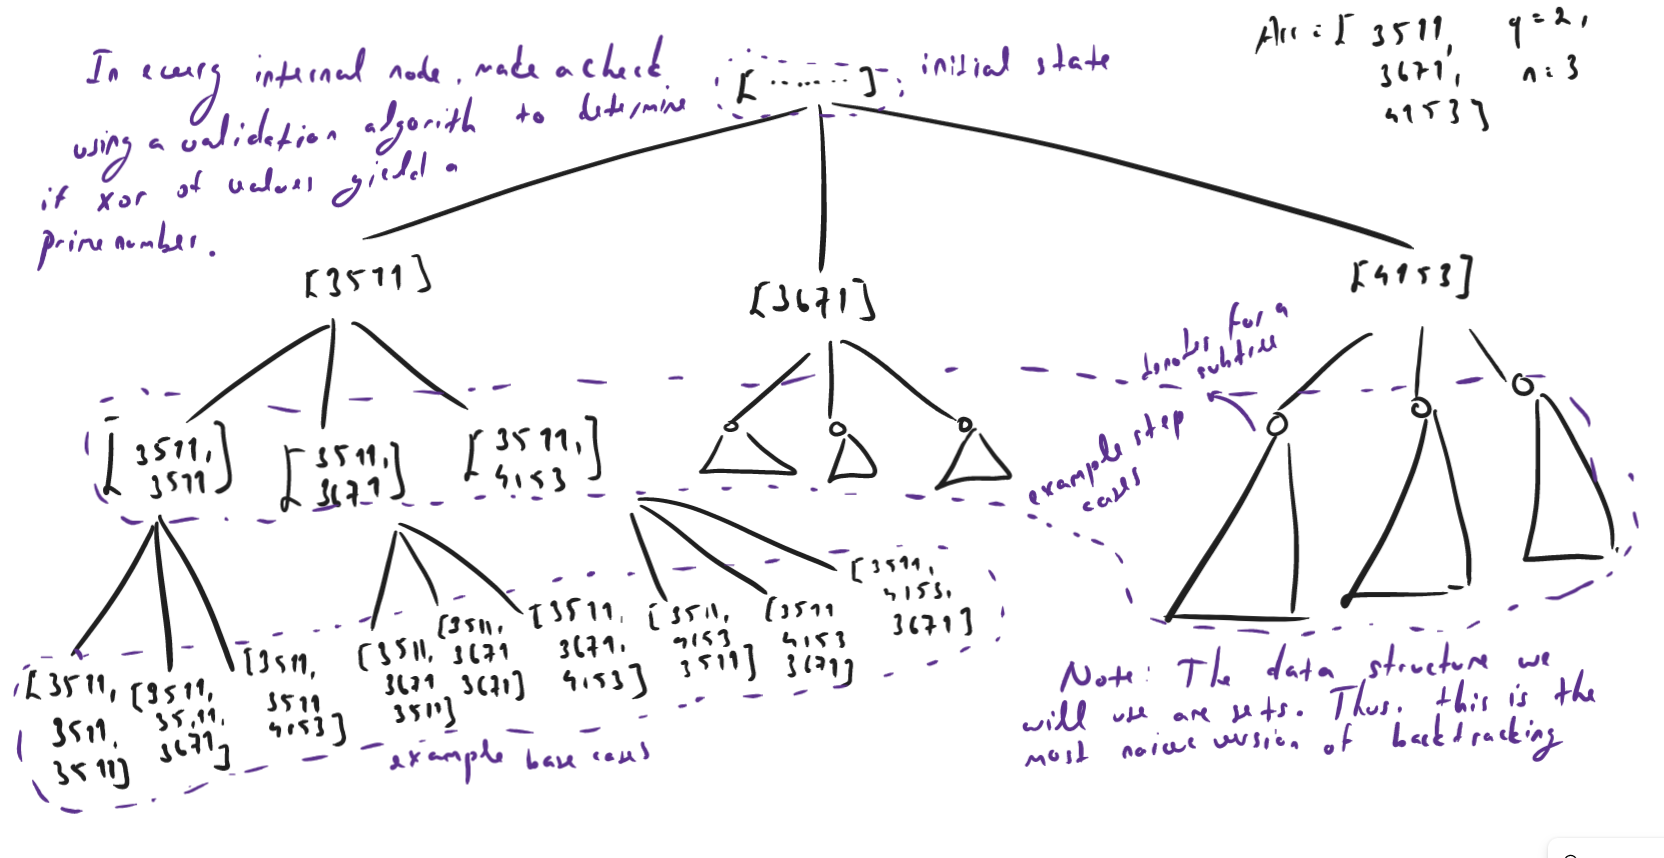 In every internal node, make a check
using a validation algorith to determine
if xor of values yield a
prime number.
[.......]
initial state
Arr = [ 3511,
3671,
4153]
q = 2,
n = 3
[3511]
[3671]
[4153]
denotes for a
subtree
example step
cases
[3511,
3511]
[3511,
3671]
[3511,
4153]
[3511,
3511,
3511]
[3511,
3511,
3671]
[3511,
3511
4153]
[3511,
3671
3511]
[3511,
3671
3671]
[3511,
3671,
4153]
[3511,
4153
3511]
[3511
4153
3671]
[3511,
4153,
3671]
example base cases
Note: The data structure we
will use are sets. Thus, this is the
most naive version of backtracking